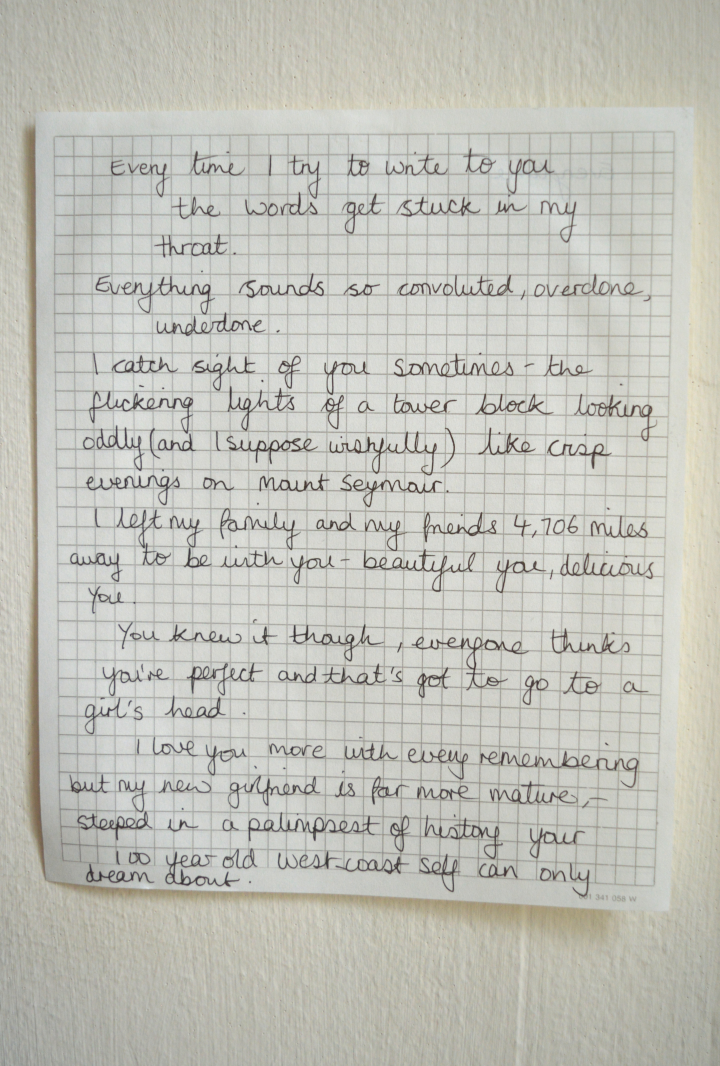 Every time I try to write to you
the words get stuck in my
throat.
Everything sounds so convoluted, overdone,
underdone.
I catch sight of you sometimes - the
flickering lights of a tower block looking
oddly (and I suppose wishfully) like crisp
evenings on Mount Seymour.
I left my family and my friends 4,706 miles
away to be with you - beautiful you, delicious
you.
You knew it though, everyone thinks
you're perfect and that's got to go to a
girl's head.
I love you more with every remembering
but my new girlfriend is far more mature, -
steeped in a palimpsest of history your
100 year old west-coast self can only
dream about.
341 056 W